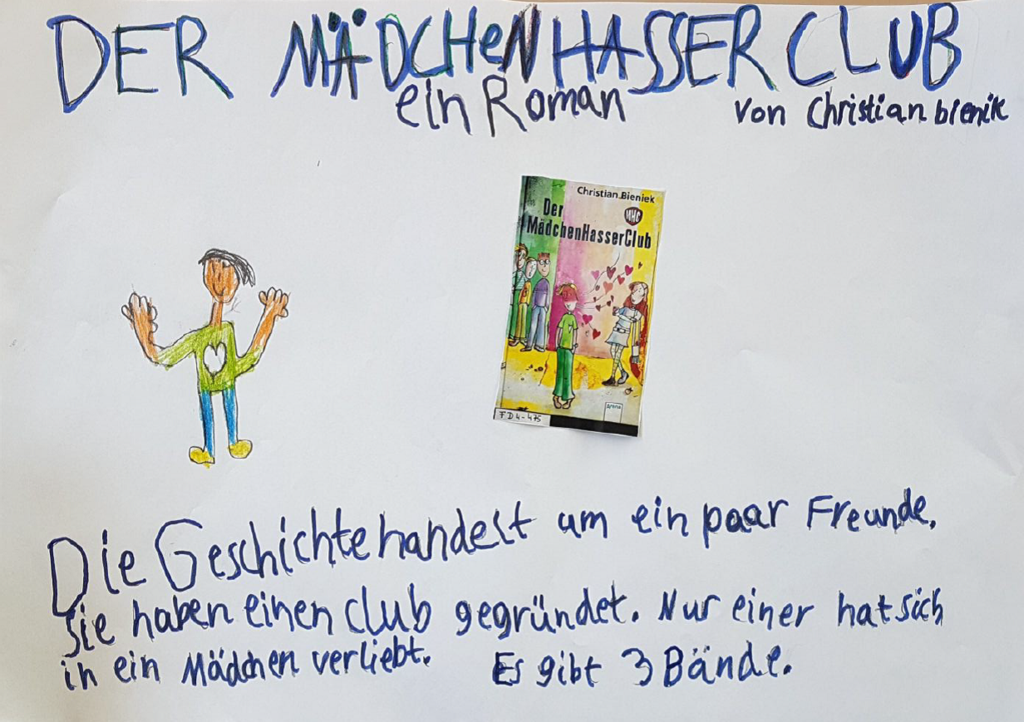 DER MÄDCHeN HASSER CLUB
ein Roman
von Christian bienik
Christian Bieniek
MHC
Der
MädchenHasserClub
Arena
F D 4 - 475
Die Geschichte handelt um ein paar Freunde.
Sie haben einen club gegründet. Nur einer hat sich
in ein Mädchen verliebt. Es gibt 3 Bände.